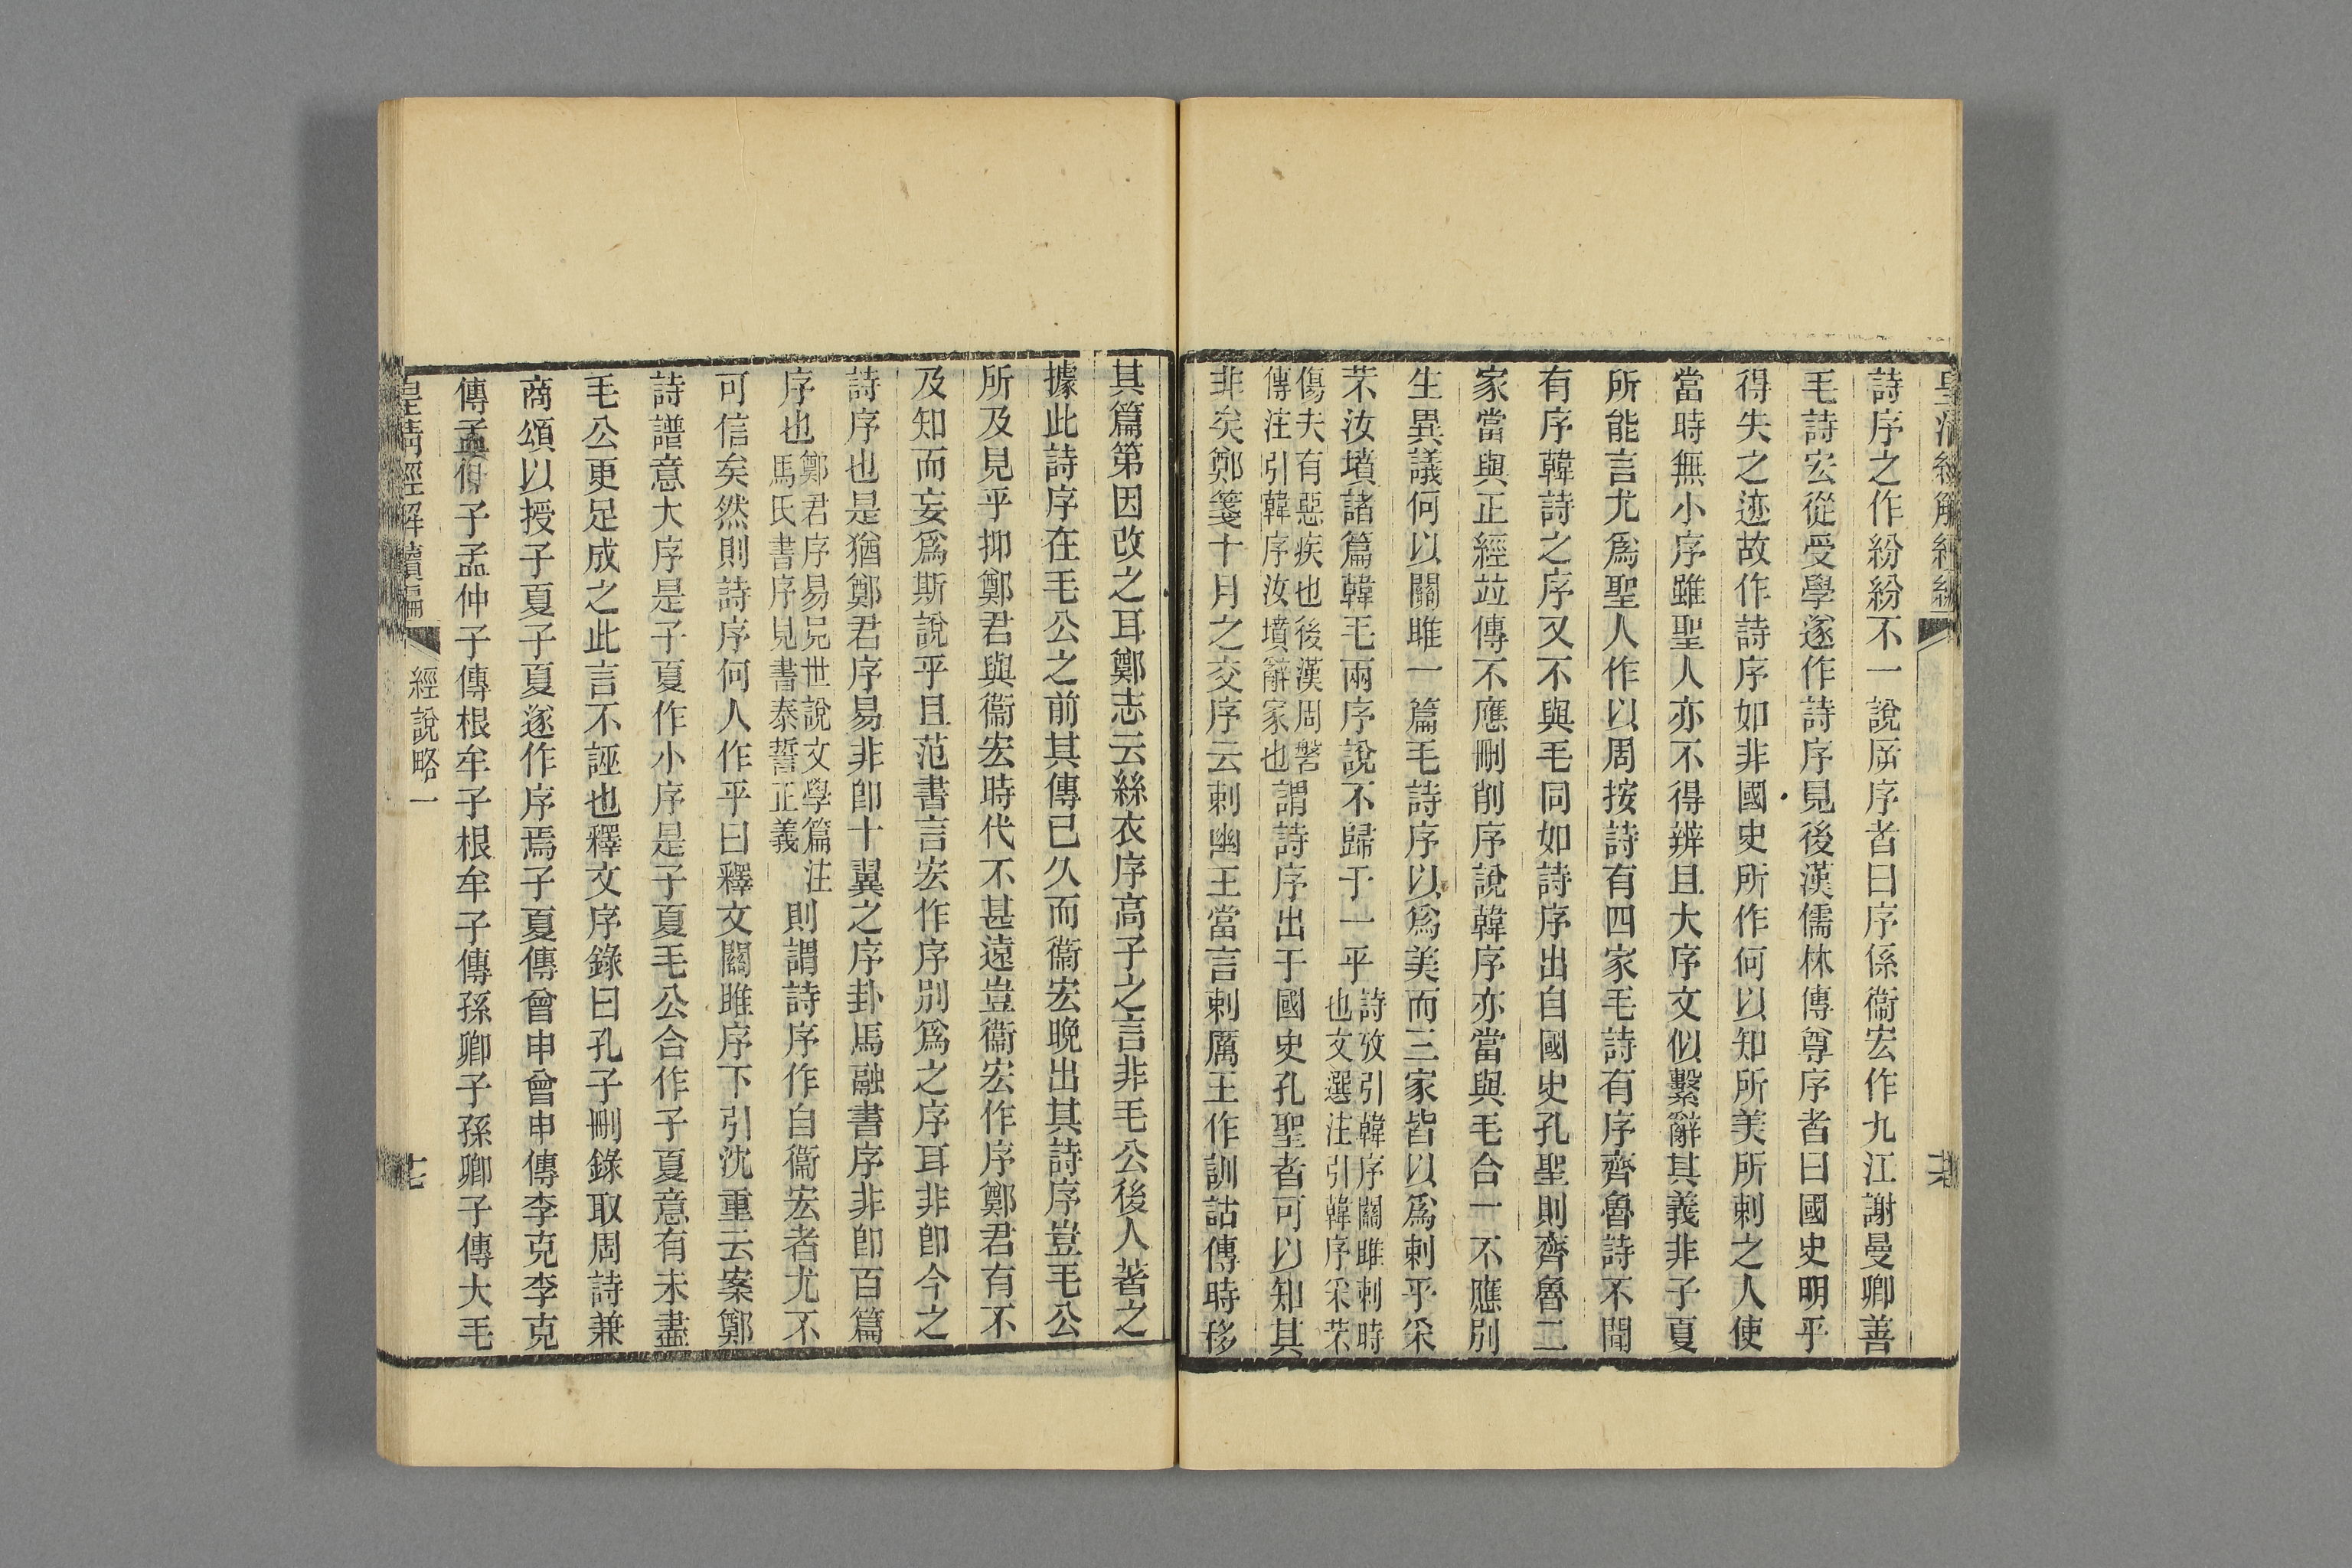 詩序之作紛紛不一說屑序者曰序係衞宏作九江謝曼卿善
毛詩宏從受學遂作詩序見後漢儒林傳尊序者曰國史明乎
得失之迹故作詩序如非國史所作何以知所美所刺之人使
當時無小序雖聖人亦不得辨且大序文似繫辭其義非子夏
所能言尤爲聖人作以周按詩有四家毛詩有序齊魯詩不聞
有序韓詩之序又不與毛同如詩序出自國史孔聖則齊魯二
家當與正經竝傳不應刪削序說韓序亦當與毛合一不應別
生異議何以關雎一篇毛詩序以爲美而三家皆以爲刺乎采
芣汝墳諸篇韓毛兩序說不歸于一乎詩攷引韓序關雎刺時也文選注引韓序采芣
傷夫有惡疾也後漢周磐傳注引韓序汝墳辭家也謂詩序出于國史孔聖者可以知其
非矣鄭箋十月之交序云刺幽王當言刺厲王作訓詁傳時移
其篇第因改之耳鄭志云絲衣序高子之言非毛公後人著之
據此詩序在毛公之前其傳已久而衞宏晚出其詩序豈毛公
所及見乎抑鄭君與衞宏時代不甚遠豈衞宏作序鄭君有不
及知而妄爲斯說乎且范書言宏作序別爲之序耳非卽今之
詩序也是猶鄭君序易非卽十翼之序卦馬融書序非卽百篇
序也鄭君序易見世說文學篇注馬氏書序見書泰誓正義則謂詩序作自衞宏者尤不
可信矣然則詩序何人作乎曰釋文關雎序下引沈重云案鄭
詩譜意大序是子夏作小序是子夏毛公合作子夏意有未盡
毛公更足成之此言不誣也釋文序錄曰孔子刪錄取周詩兼
商頌以授子夏子夏遂作序焉子夏傳曾申曾申傳李克李克
傳孟仲子孟仲子傳根牟子根牟子傳孫卿子孫卿子傳大毛
皇淸經解續編
經說略一